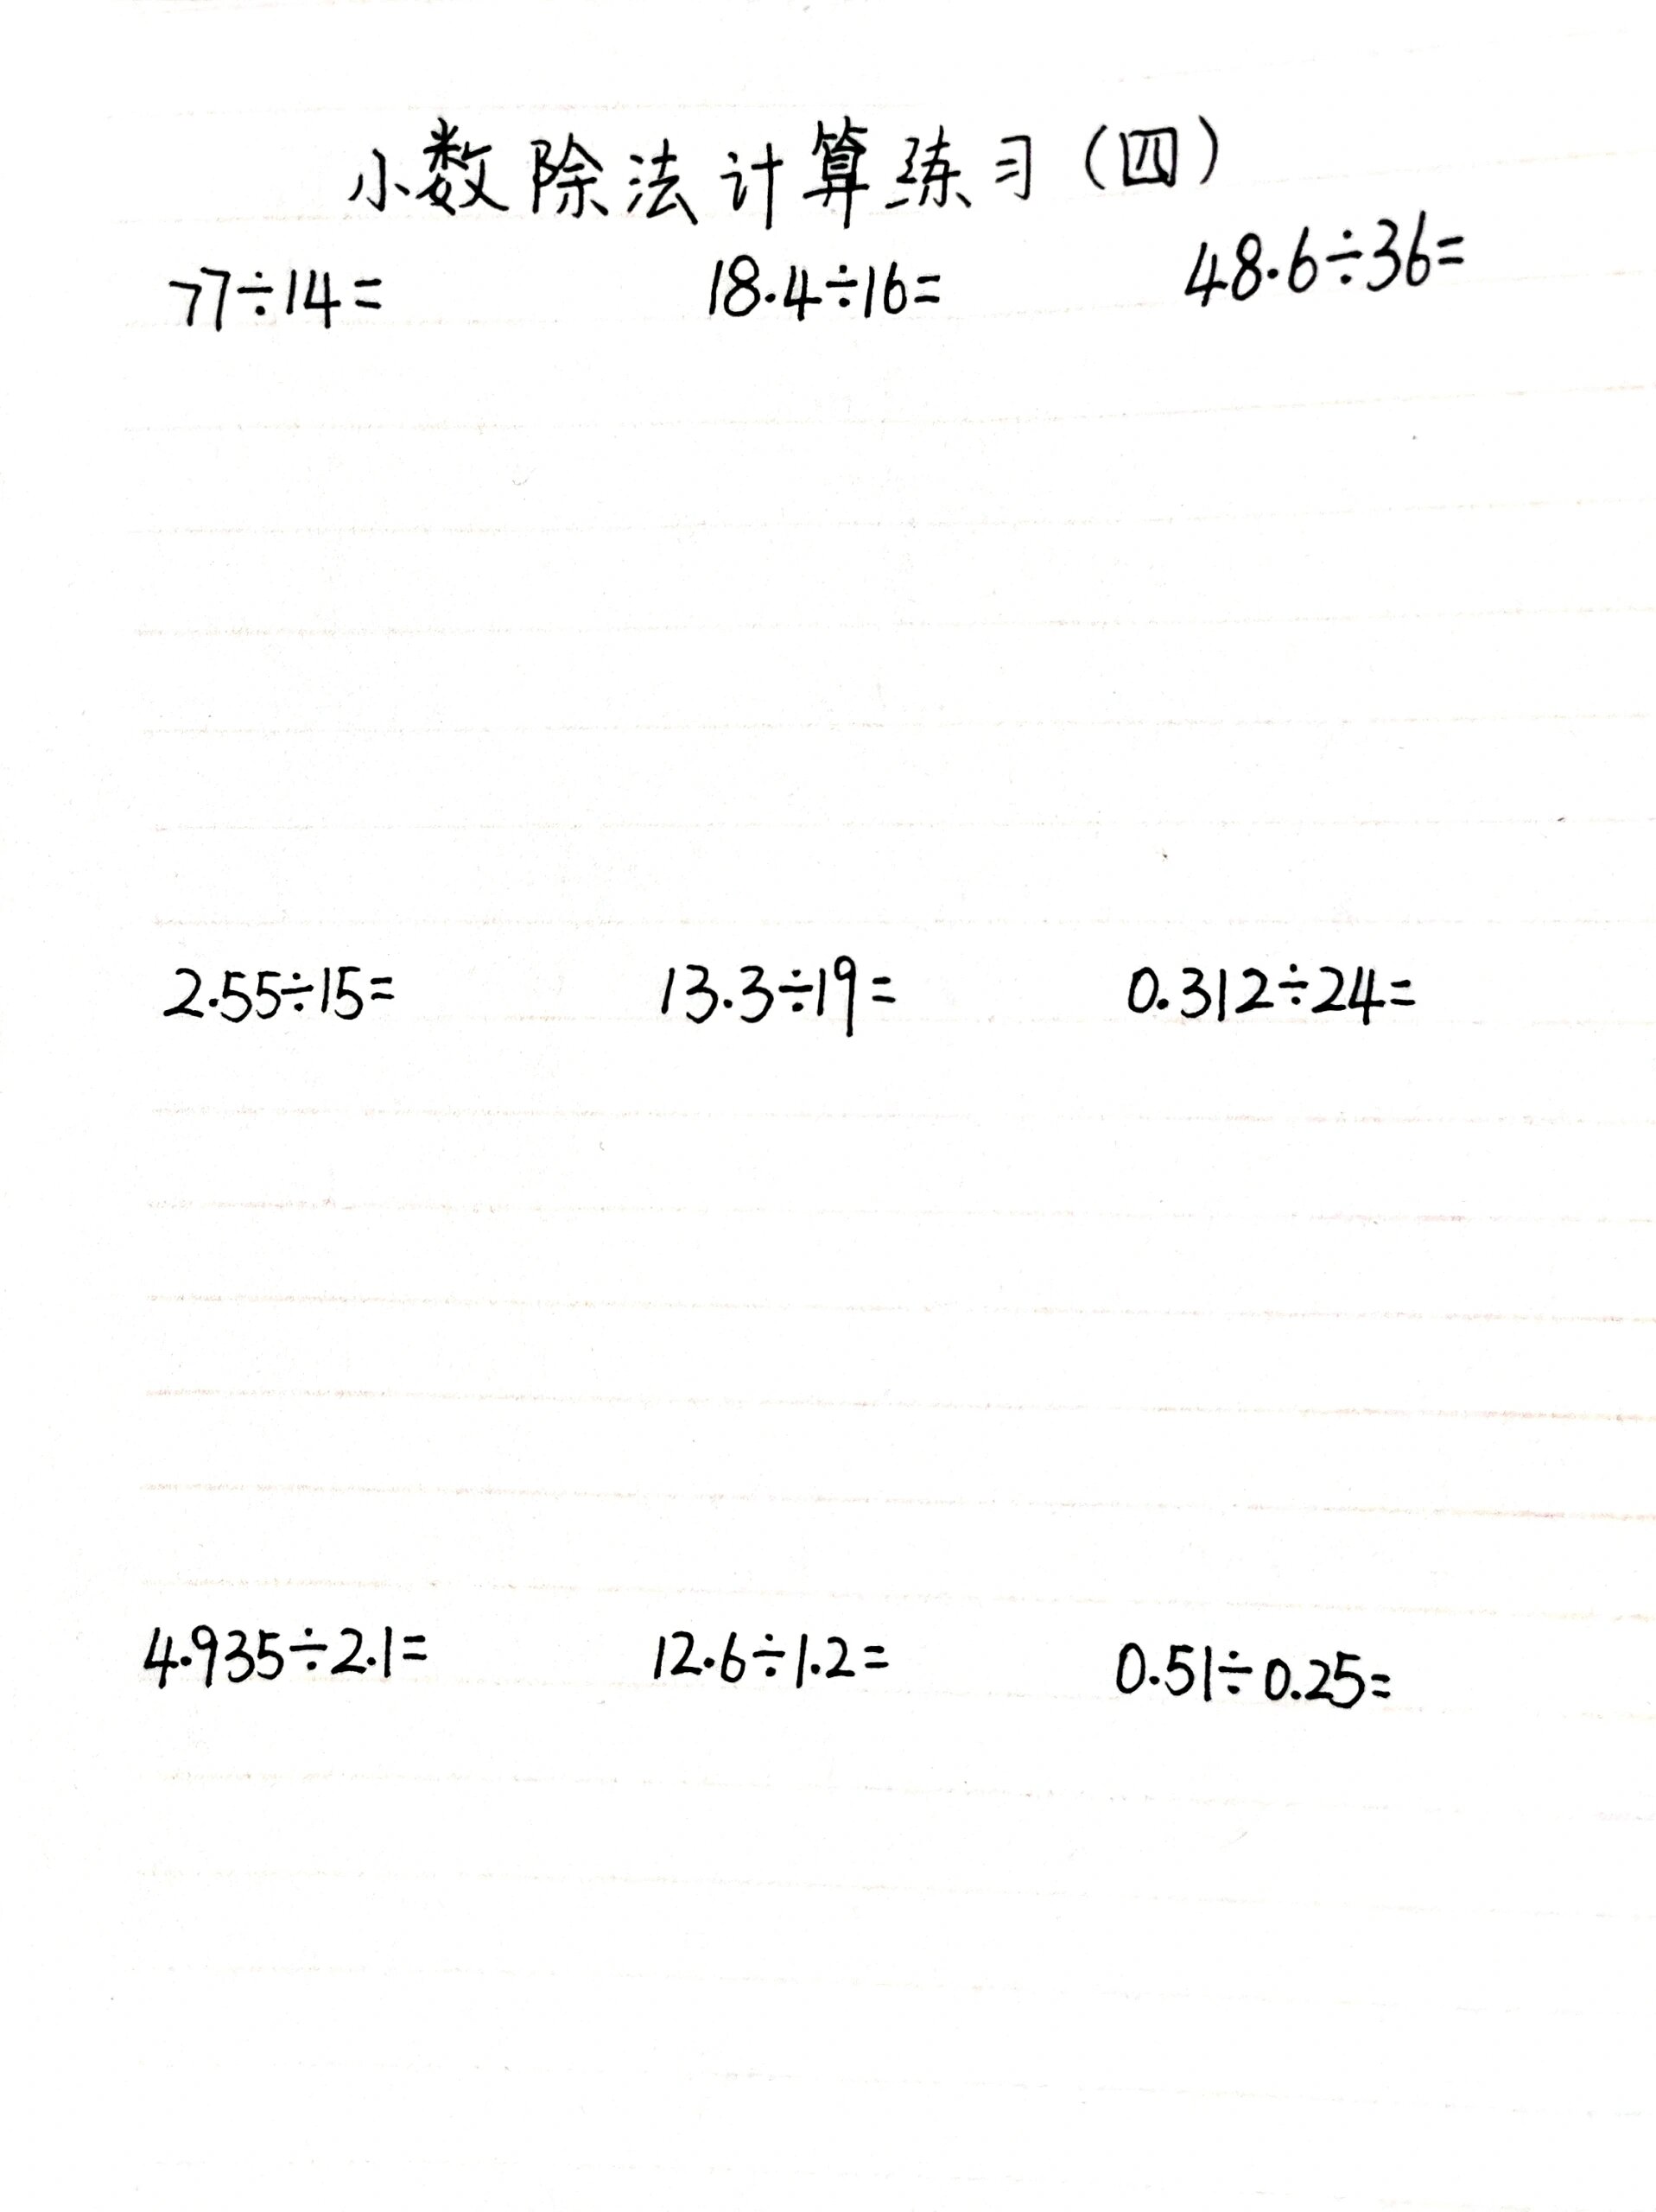 小数除法计算练习(四)
77÷14= 18.4÷16= 48.6÷36=
2.55÷15= 13.3÷19= 0.312÷24=
4.935÷2.1= 12.6÷1.2= 0.51÷0.25=